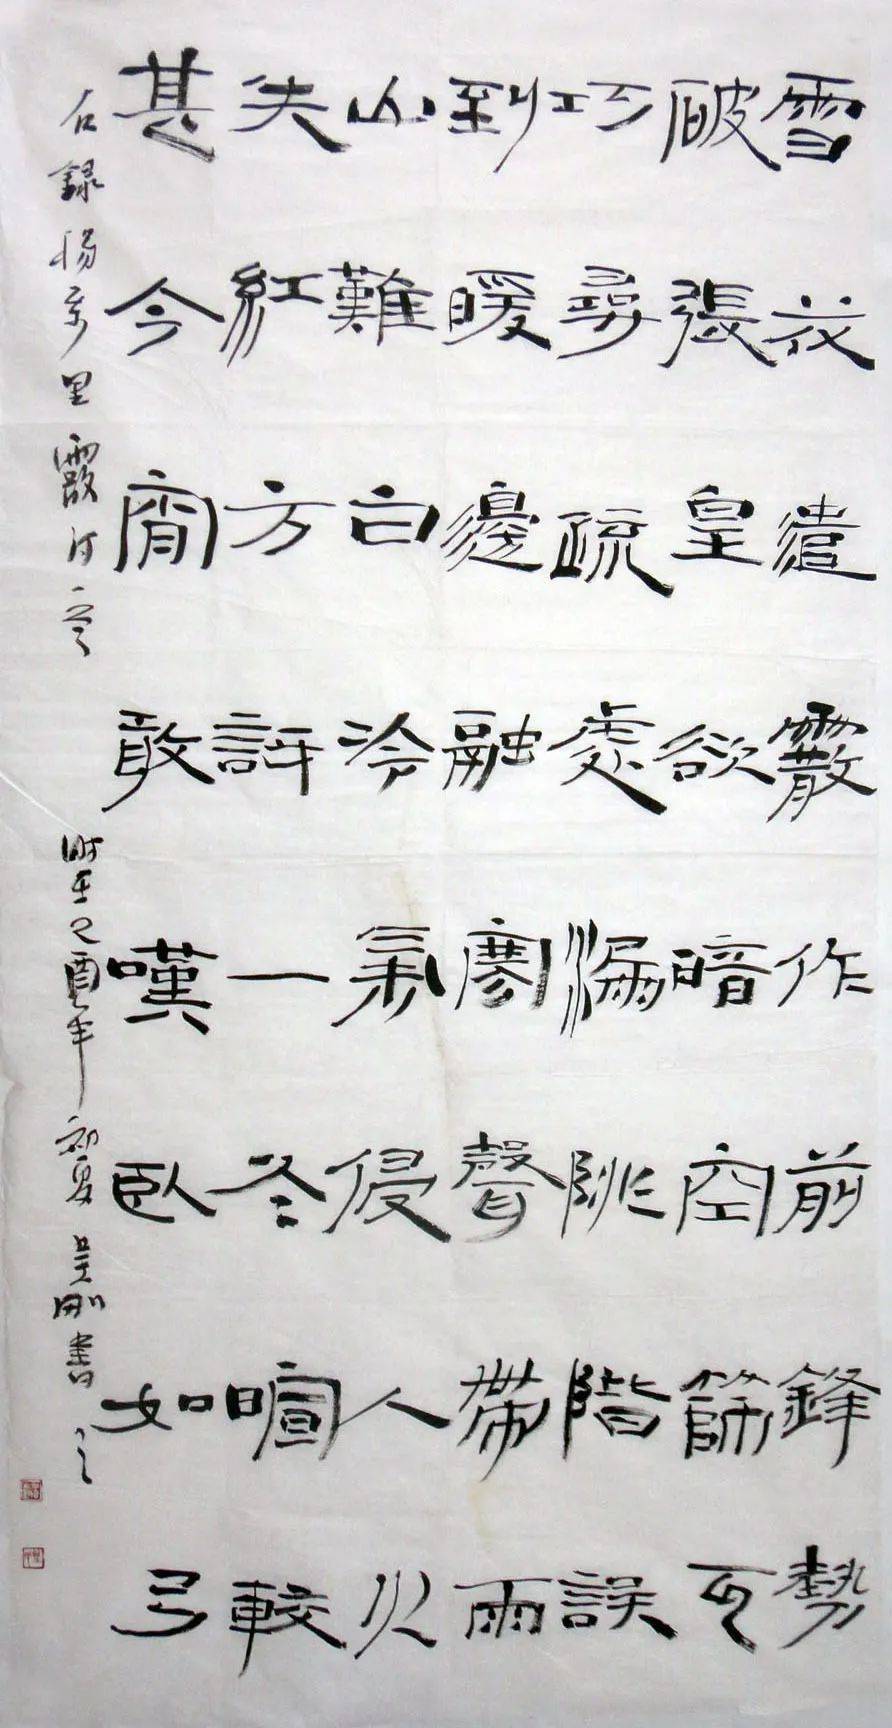 雪花遣霰作前鋒勢
破張皇欲暗空篩瓦
巧尋疏處漏跳階誤
到暖邊融寒聲帶雨
山難白冷氣侵人火
失紅方訝一冬暄較
甚今宵敢嘆臥如弓
右錄楊萬里霰詩一首 時在乙酉年初夏 吳剛書之